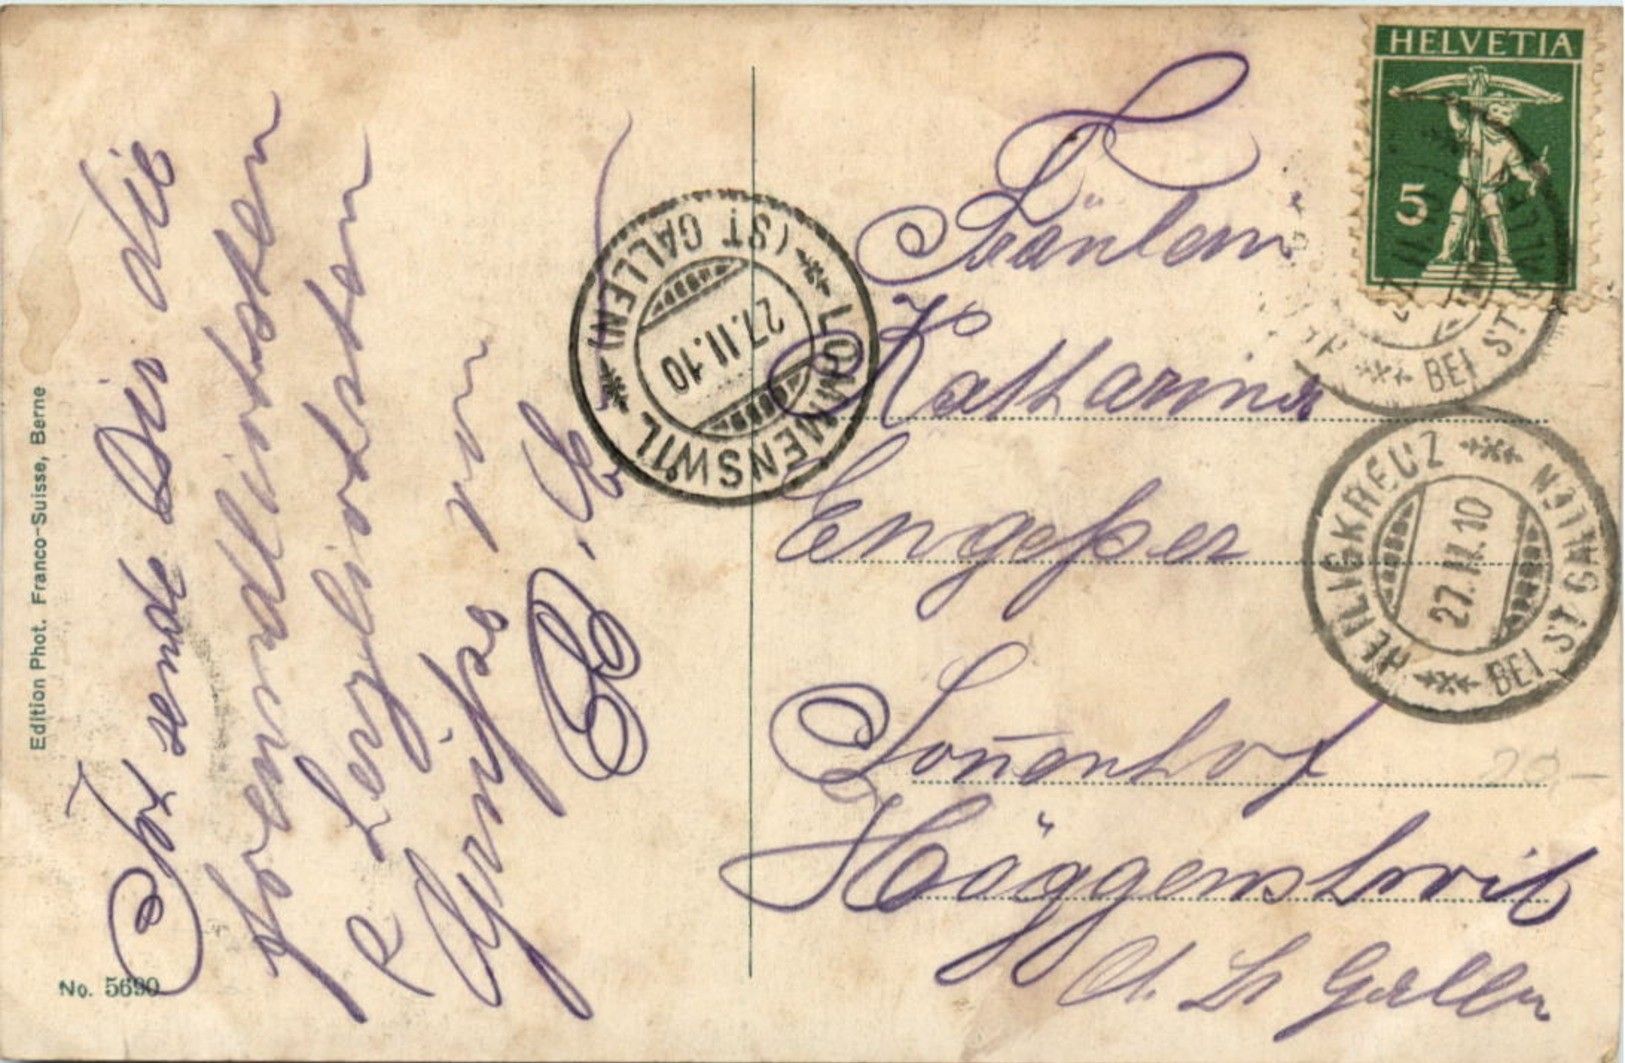 Ich sende Dir die
freundlichsten
& herzlichsten
Grüsse von
Edition Phot. Franco-Suisse, Berne
No. 5690
HELVETIA
5
LÖMMENSWIL
(ST GALLEN)
27.II.10
BEI ST
HEILIGKREUZ
BEI ST GALLEN
27.II.10
Fräulein
Katharina
Engesser
Häggenschwil
Ct. St Gallen
20-